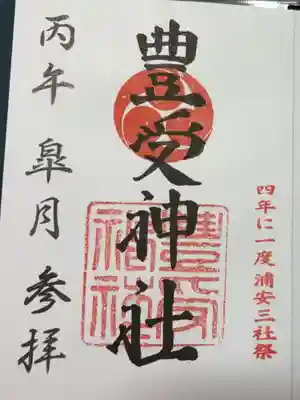 四年に一度浦安三社祭
豊受神社
豊受神社
丙午 皐月 参拝